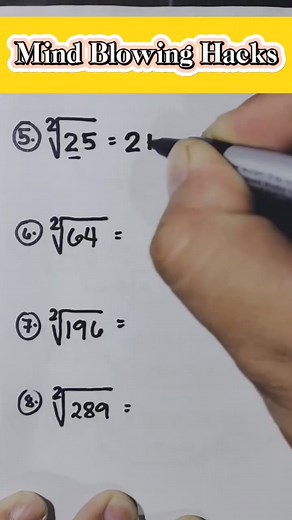 Mind Blowing Hacks
5. ²√25 = 2
6. ²√64 =
7. ²√196 =
8. ²√289 =